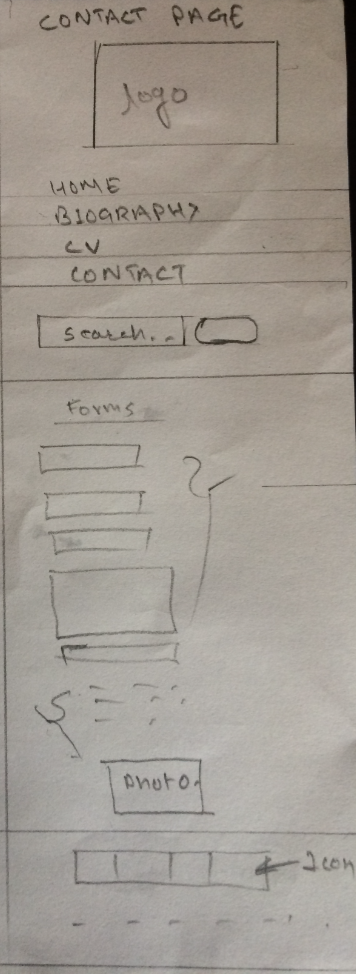 CONTACT PAGE
logo
HOME
BIOGRAPHY
CV
CONTACT
search...
Forms
photo.
Icon